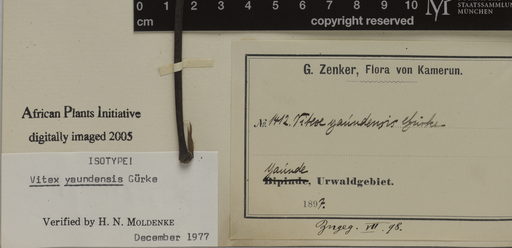 0 1 2 3 4 5 6 7 8 9 10
cm
copyright reserved
STAATSSAMMLU
MÜNCHEN
African Plants Initiative
digitally imaged 2005
ISOTYPE!
Vitex yaundensis Gürke
Verified by H. N. MOLDENKE
December 1977
G. Zenker, Flora von Kamerun.
No. 1412. Vitex yaúndensis Gürke
Yaúnde
Bipinde, Urwaldgebiet.
1897.
VIII. 98.